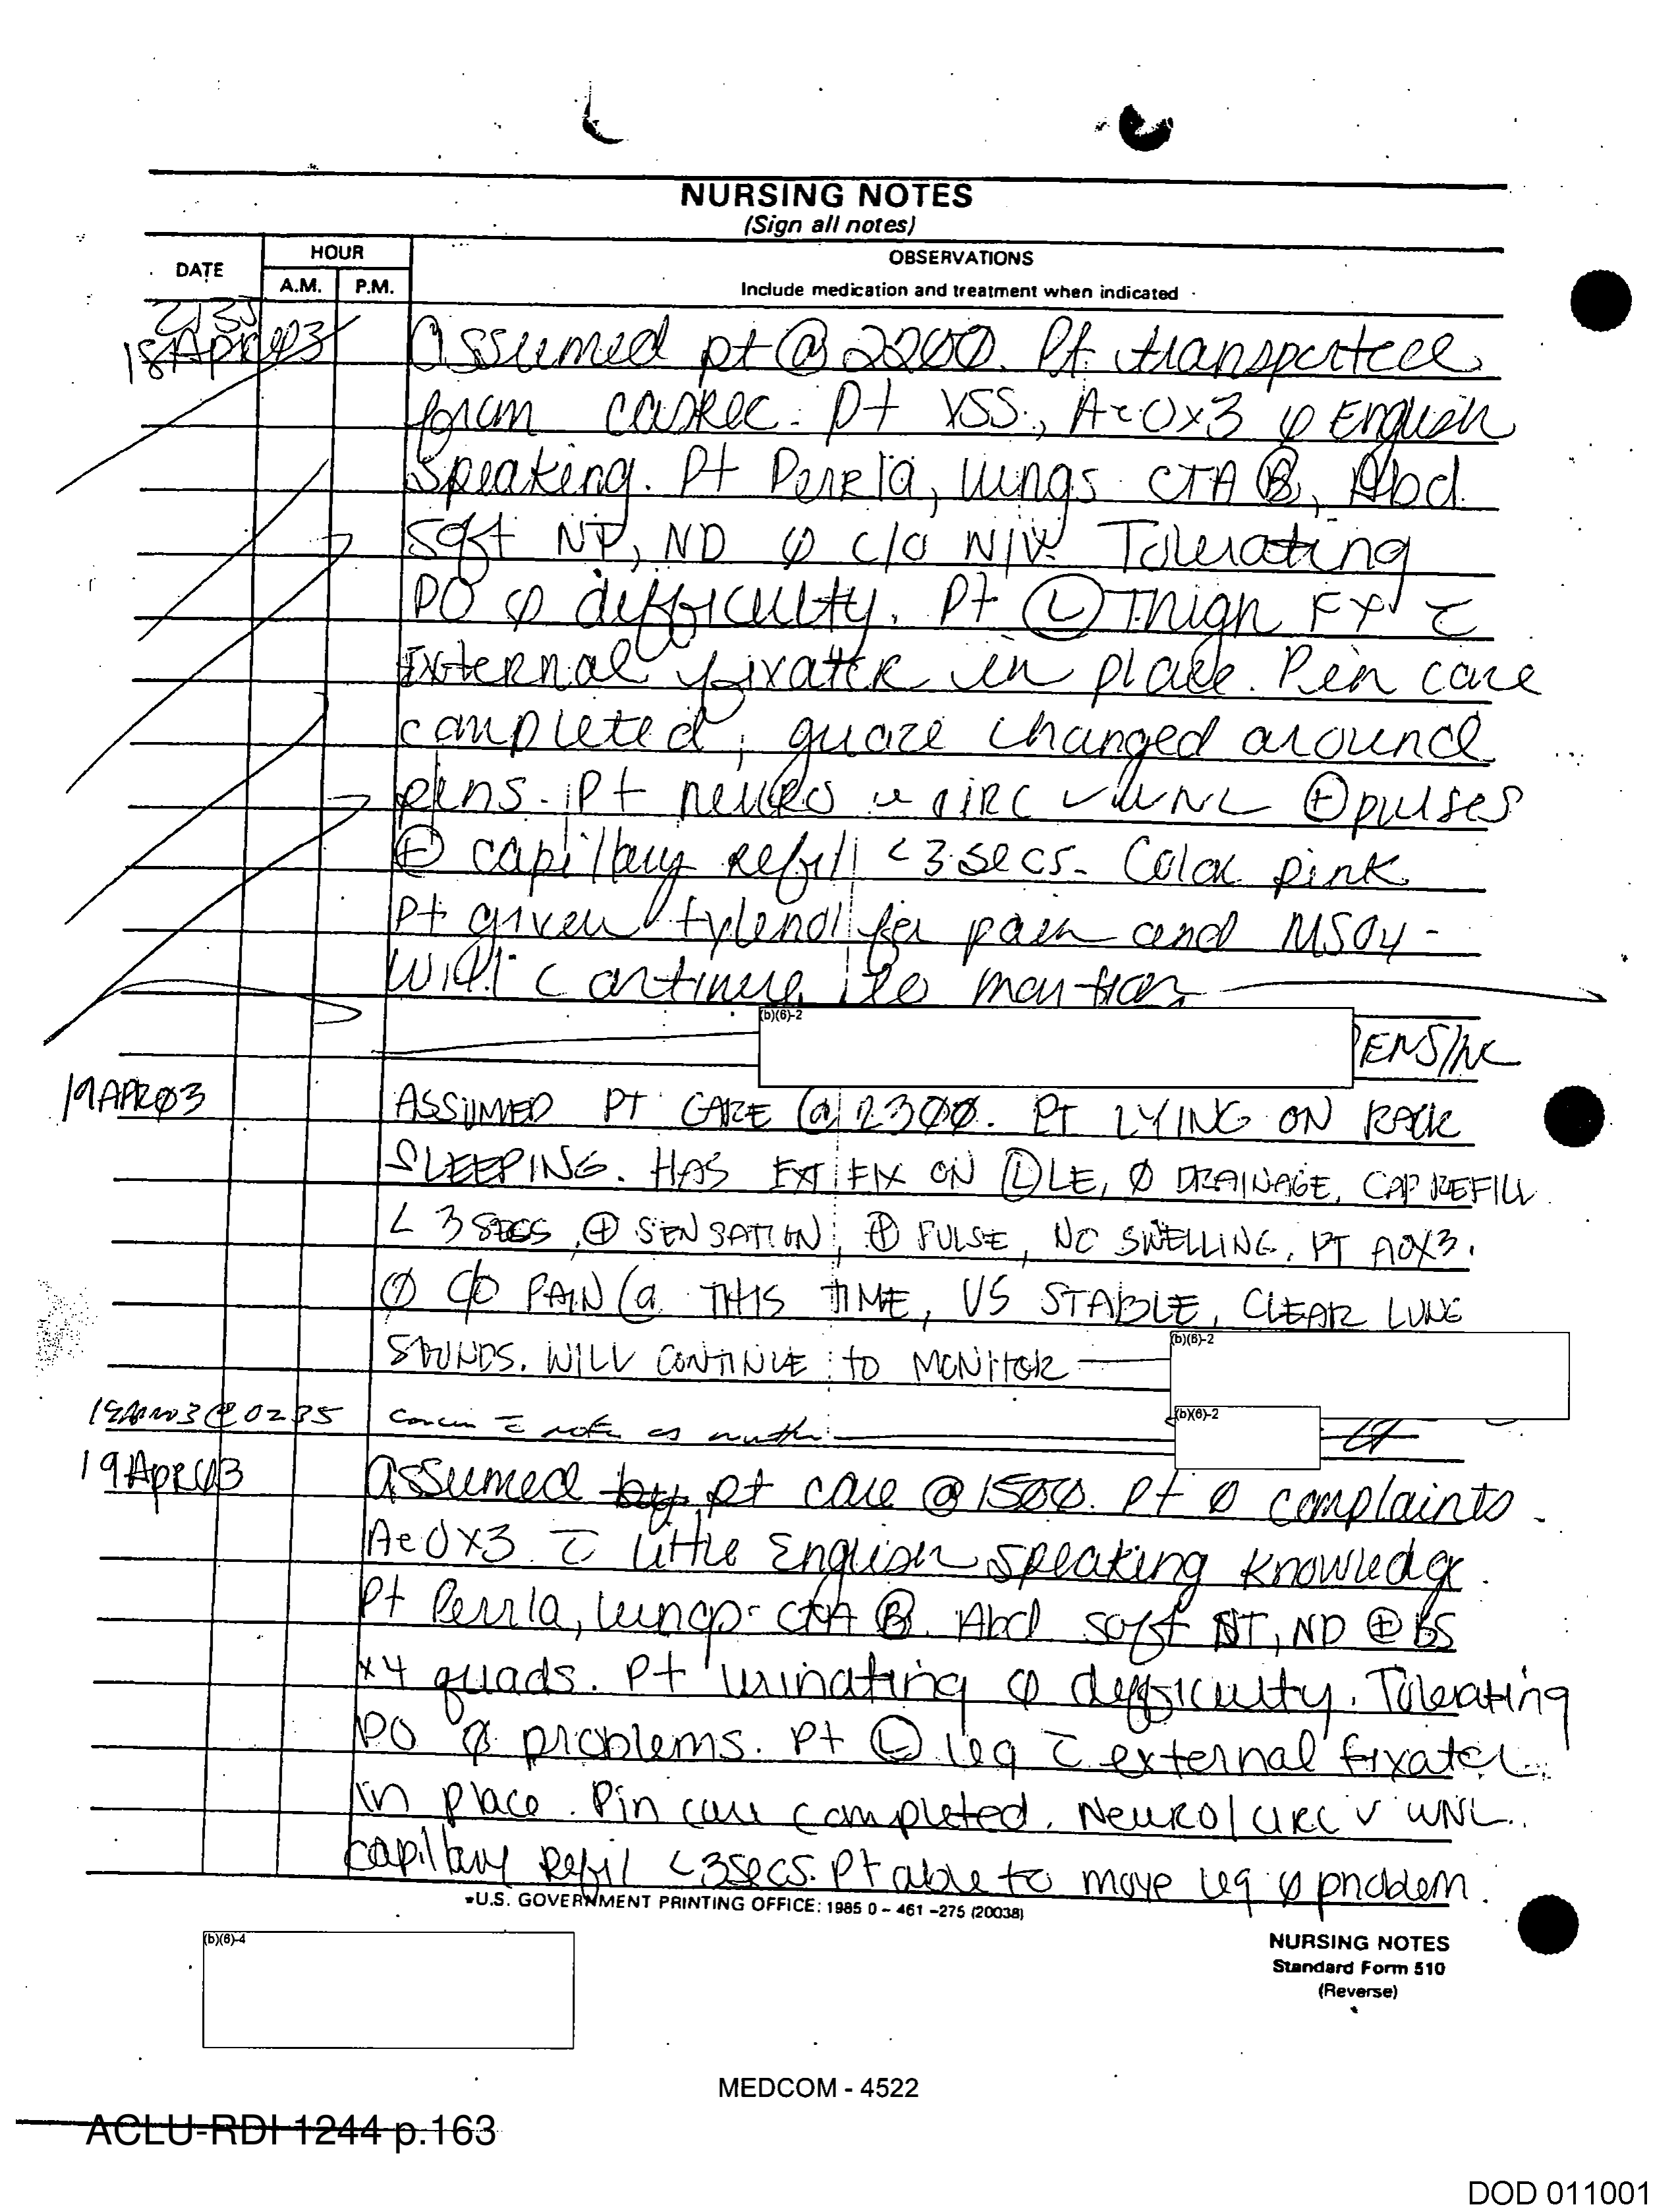 NURSING NOTES
(Sign all notes)
DATE
HOUR
A.M.
P.M.
OBSERVATIONS
Include medication and treatment when indicated
2135
18Apr03
Assumed pt @ 2200. Pt transported
form casrec. Pt VSS, A+Ox3 ø English
Speaking. Pt Perrla, lungs CTA Ⓑ, Abd
soft NT, ND ø c/o N/V. Tolerating
PO ø difficulty. Pt Ⓛ Thigh FX c̄
External fixater in place. Pin care
completed, guaze changed around
pins. Pt neuro + circ ✓ WNL ⊕ pulses
⊕ capillary Refill <3 secs. Color pink
Pt given tylenol for pain and MSO4 -
Will continue to monitor
(b)(6)-2
ENS/NC
19APRØ3
ASSUMED PT CARE @ 2300. PT LYING ON RACK
SLEEPING. HAS EXT FIX ON Ⓛ LE, Ø DRAINAGE, CAP REFILL
< 3 SECS, ⊕ SENSATION, ⊕ PULSE, NO SWELLING, PT AOX3.
Ø C/O PAIN @ THIS TIME, VS STABLE, CLEAR LUNG
SOUNDS. WILL CONTINUE TO MONITOR
(b)(6)-2
@ 0235 concur c̄ note as written
(b)(6)-2
19Apr03
Assumed by pt care @ 1500. Pt ø complaints.
A+Ox3 c̄ little English speaking knowledge.
Pt Perrla, lungs CTA Ⓑ. Abd soft NT, ND ⊕ BS
x4 quads. Pt urinating ø difficulty. Tolerating
PO ø problems. Pt Ⓛ leg c̄ external fixater
in place. Pin care completed. Neuro/circ ✓ WNL.
capillary Refil <3secs. Pt able to move leg ø problem.
*U.S. GOVERNMENT PRINTING OFFICE: 1985 0 - 461 -275 (20038)
(b)(6)-4
NURSING NOTES
Standard Form 510
(Reverse)
MEDCOM - 4522
ACLU-RDI 1244 p.163
DOD 011001